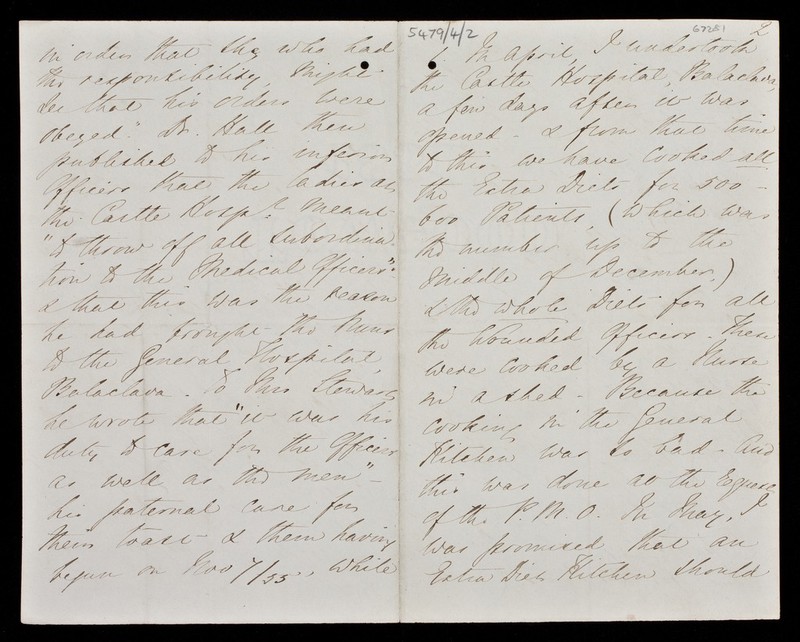 in order that she who had
the responsibility, might
see that his orders were
obeyed." Dr. Hall then
published to his inferior
Officers that the ladies at
the Castle Hospl. meant
"to throw off all subordina-
tion to the Medical Officers"
& that this was the reason
he had brought the Nuns
to the General Hospital,
Balaclava. To Mrs Stewart
he wrote that "it was his
duty to care for the Officers
as well as the men" -
his paternal care for
their toast & them having
begun on Nov 7/55, while
5479/4/2
67281
2
In April, I undertook
the Castle Hospital, Balaclava,
a few days after it was
opened - & from that time
to this we have cooked all
the Extra Diets for 500 -
600 Patients, (which was
the number up to the
middle of December,)
& the whole Diets for all
the wounded Officers. These
were cooked by a Nurse
in a shed - Because the
cooking in the General
Kitchen was so bad - And
this was done at the request
of the P. M. O. In May, I
was promised that an
Extra Diet Kitchen should